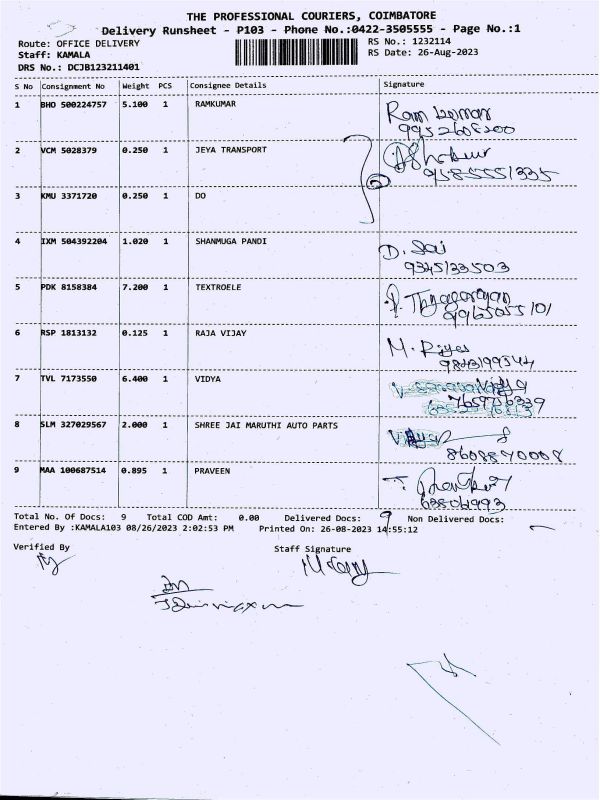 THE PROFESSIONAL COURIERS, COIMBATORE
Delivery Runsheet - P103 - Phone No.:0422-3505555 - Page No.:1
Route: OFFICE DELIVERY RS No.: 1232114
Staff: KAMALA RS Date: 26-Aug-2023
DRS No.: DCJB123211401
S No Consignment No Weight PCS Consignee Details Signature
1 BHO 500224757 5.100 1 RAMKUMAR Ram kumar
9952608200
2 VCM 5028379 0.250 1 JEYA TRANSPORT
9585551335
3 KMU 3371720 0.250 1 DO
4 IXM 504392204 1.020 1 SHANMUGA PANDI D. Sai
9345133503
5 PDK 8158384 7.200 1 TEXTROELE P. Thyagarajan
9965055101
6 RSP 1813132 0.125 1 RAJA VIJAY M.
9843199544
7 TVL 7173550 6.400 1 VIDYA Vidya
7659756339
8 SLM 327029567 2.000 1 SHREE JAI MARUTHI AUTO PARTS
8608870008
9 MAA 100687514 0.895 1 PRAVEEN
Total No. Of Docs: 9 Total COD Amt: 0.00 Delivered Docs: 9 Non Delivered Docs:
Entered By :KAMALA103 08/26/2023 2:02:53 PM Printed On: 26-08-2023 14:55:12
Verified By Staff Signature